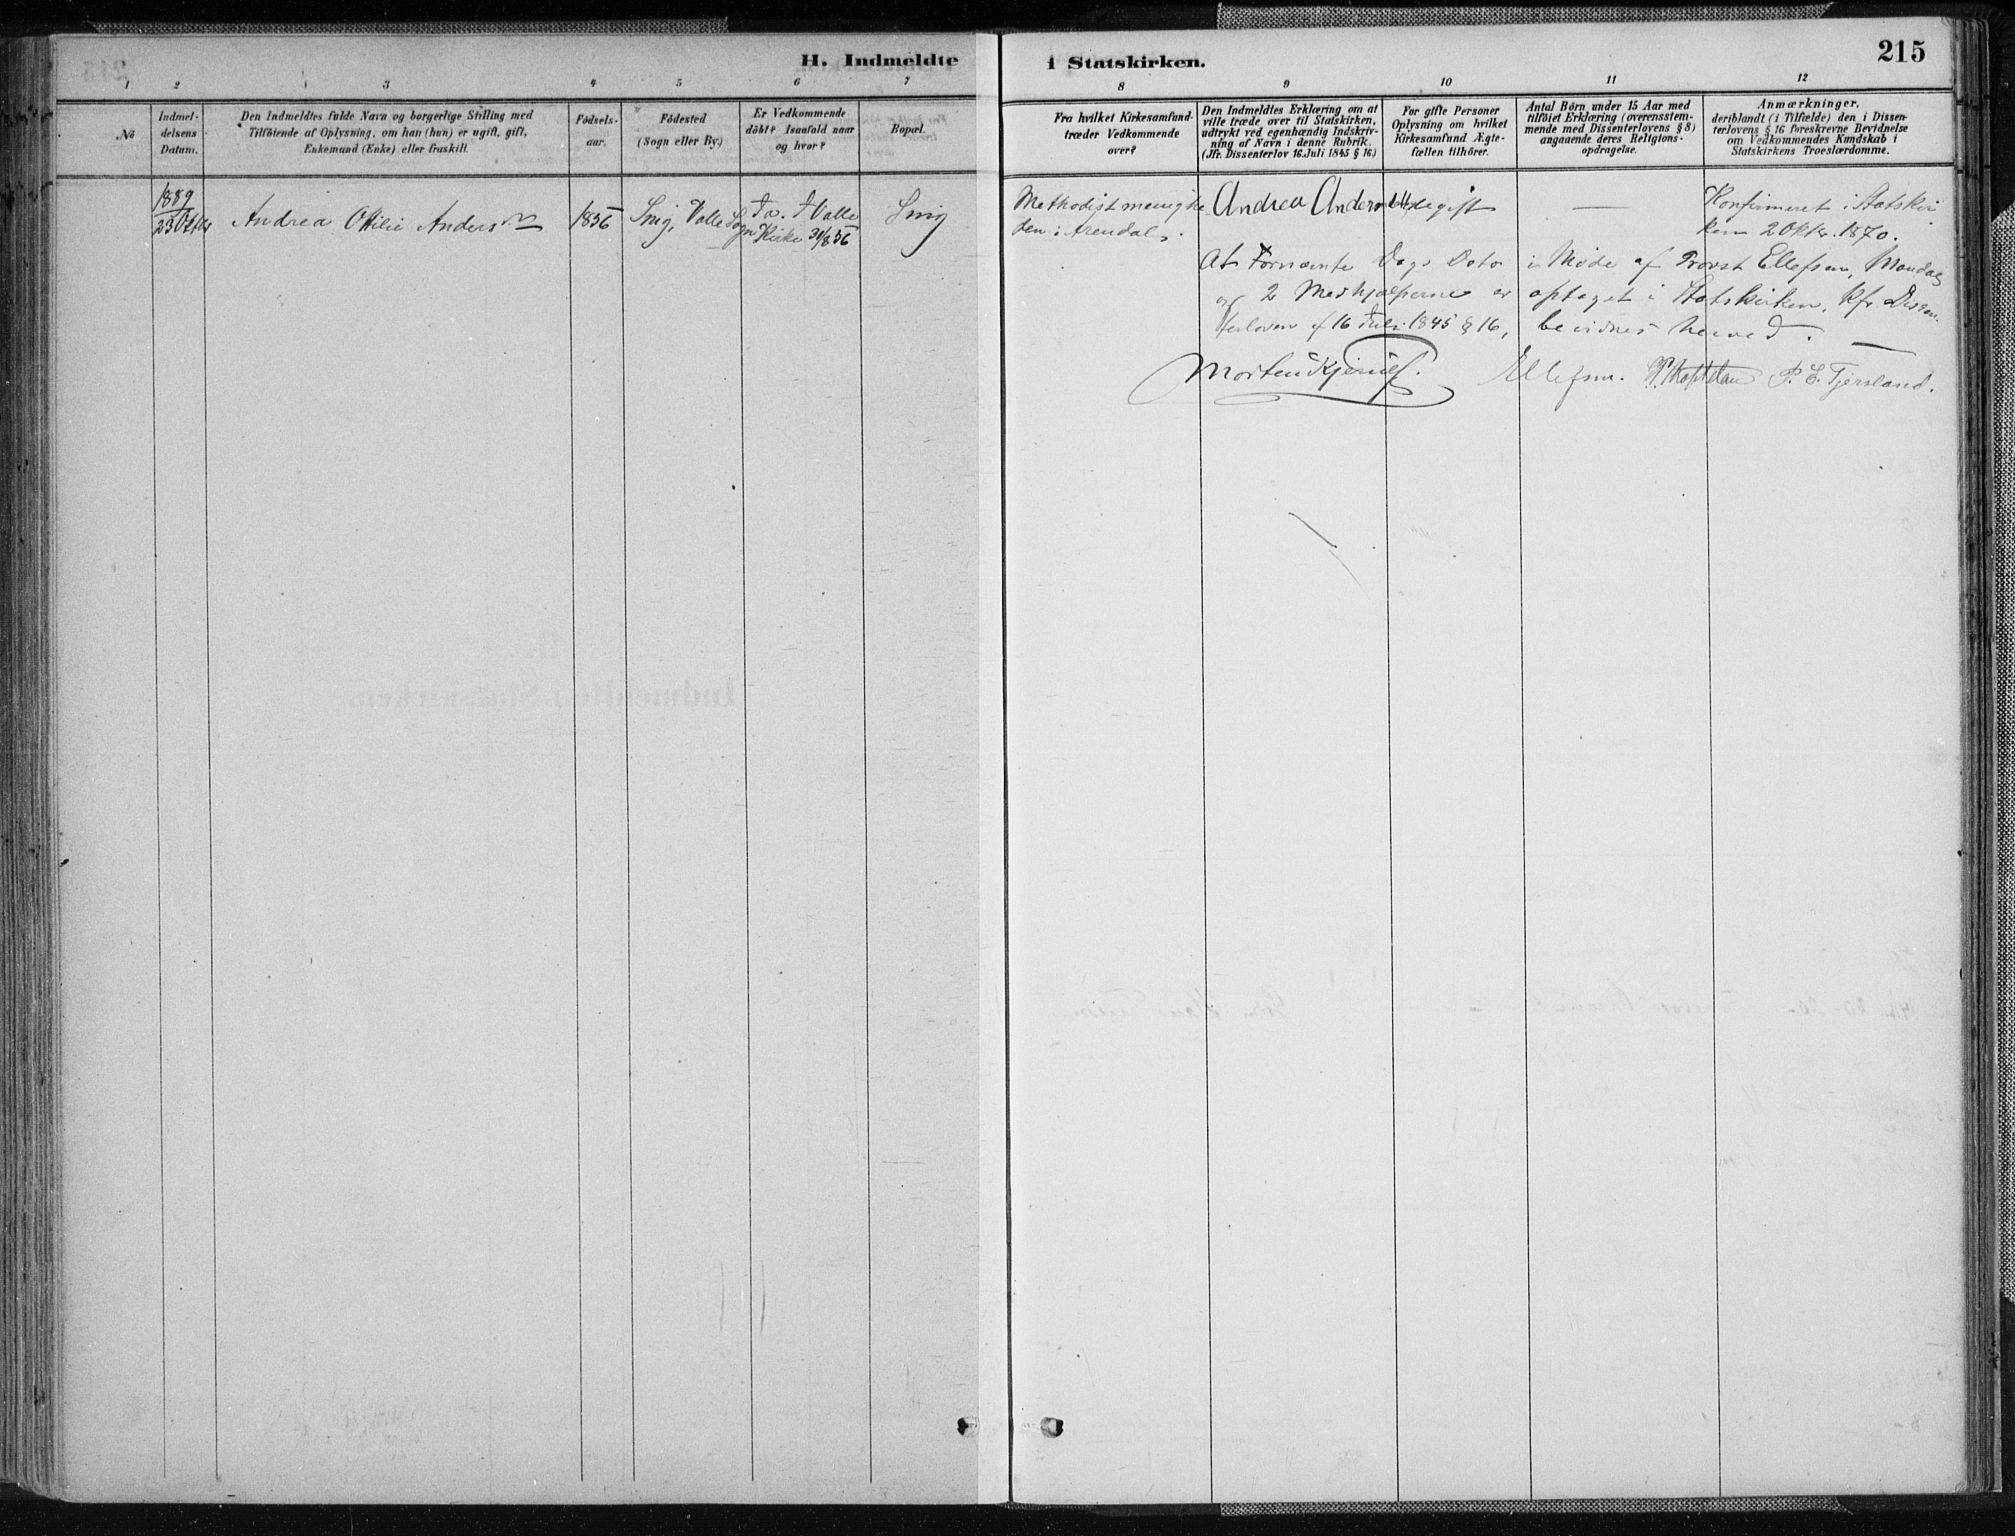 H. Indmeldte i Statskirken.
215
1 2 3 4 5 6 7 8 9 10 11 12
No
Indmel-
delsens
Datum.
Den Indmeldtes fulde Navn og borgerlige Stilling med
Tilföiende af Oplysning, om han (hun) er ugift, gift,
Enkemand (Enke) eller fraskilt.
Födsels-
aar.
Födested
(Sogn eller By.)
Er Vedkommende
döbt? Isaafald naar
og hvor?
Bopæl.
Fra hvilket Kirkesamfund
træder Vedkommende
over?
Den Indmeldtes Erklæring om at
ville træde over til Statskirken,
udtrykt ved egenhændig Indskriv-
ning af Navn i denne Rubrik.
(Jfr. Dissenterlov 16. Juli 1845 § 16)
For gifte Personer
Oplysning om hvilket
Kirkesamfund Ægte-
fællen tilhörer.
Antal Börn under 15 Aar med
tilföiet Erklæring (overensstem-
mende med Dissenterlovens § 8)
angaaende deres Religions-
opdragelse.
Anmærkninger,
deriblandt (i Tilfælde) den i Dissen-
terlovens § 16 foreskrevne Bevidnelse
om Vedkommendes Kundskab i
Statskirkens Troeslærdomme.
1889
23 Oktbr
Andrea Otilie Andersen
1856
Snig, Valle Sogn
Ja. I Valle
Kirke 31/8 56
Snig
Methodistmenighe
den i Arendal.
Andrea Andersen
Ugift
—
Konfirmeret i Statskir
ken 2 Oktr. 1870.
At Fornævnte Dags Dato i Møde af Provst Ellefsen, Mandal
og 2 Medhjælperne er optaget i Statskirken, kfr Dissen-
terloven af 16 Juli 1845 § 16, bevidnes herved.
Morten Ellefsen. P. E. Tjersland.